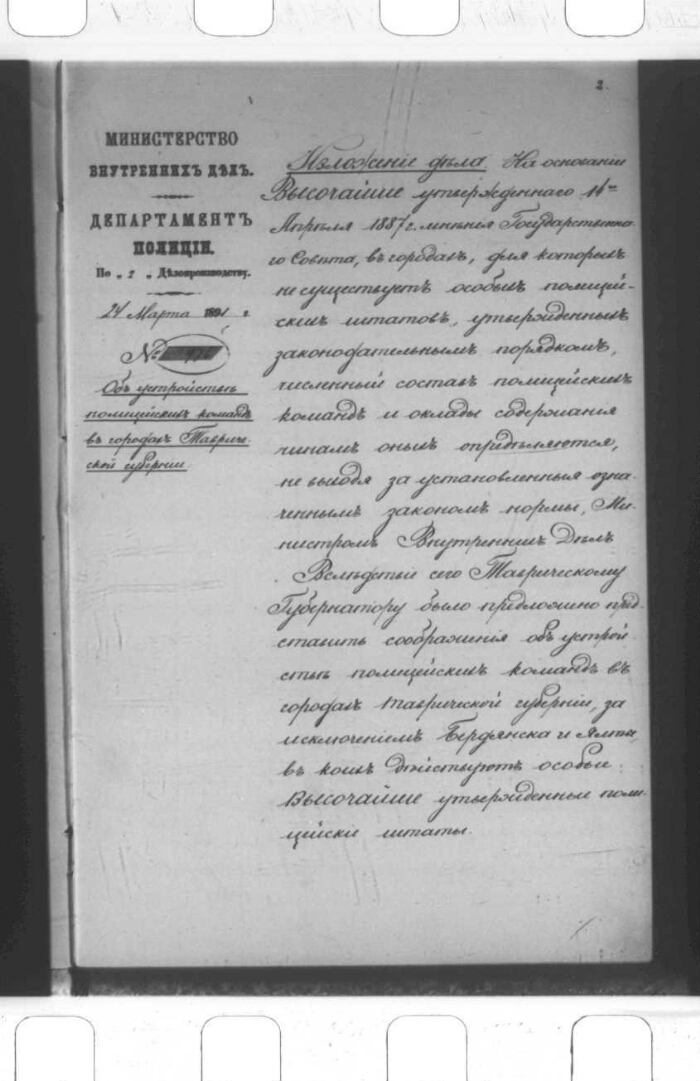 2.
МИНИСТЕРСТВО
ВНУТРЕННИХЪ ДѢЛЪ.
ДЕПАРТАМЕНТЪ
ПОЛИЦІИ.
По „ 2 „ Дѣлопроизводству.
24 Марта 1891 г.
№
Объ устройствѣ
полицейскихъ командъ
въ городахъ Тавриче-
ской губерніи
Изложеніе дѣла. На основаніи
Высочайше утвержденнаго 14го
Апрѣля 1887 г. мнѣнія Государственна-
го Совѣта, въ городахъ, для которыхъ
не существуетъ особыхъ полицей-
скихъ штатовъ, утвержденныхъ
законодательнымъ порядкомъ,
численный составъ полицейскихъ
командъ и оклады содержанія
чинамъ оныхъ опредѣляются,
не выходя за установленныя озна-
ченнымъ закономъ нормы, Ми-
нистромъ Внутреннихъ Дѣлъ
Вслѣдствіе сего Таврическому
Губернатору было предложено пред-
ставить соображенія объ устрой-
ствѣ полицейскихъ командъ въ
городахъ Таврической губерніи, за
исключеніемъ Бердянска и Ялты,
въ коихъ дѣйствуютъ особые
Высочайше утвержденные поли-
цейскіе штаты.